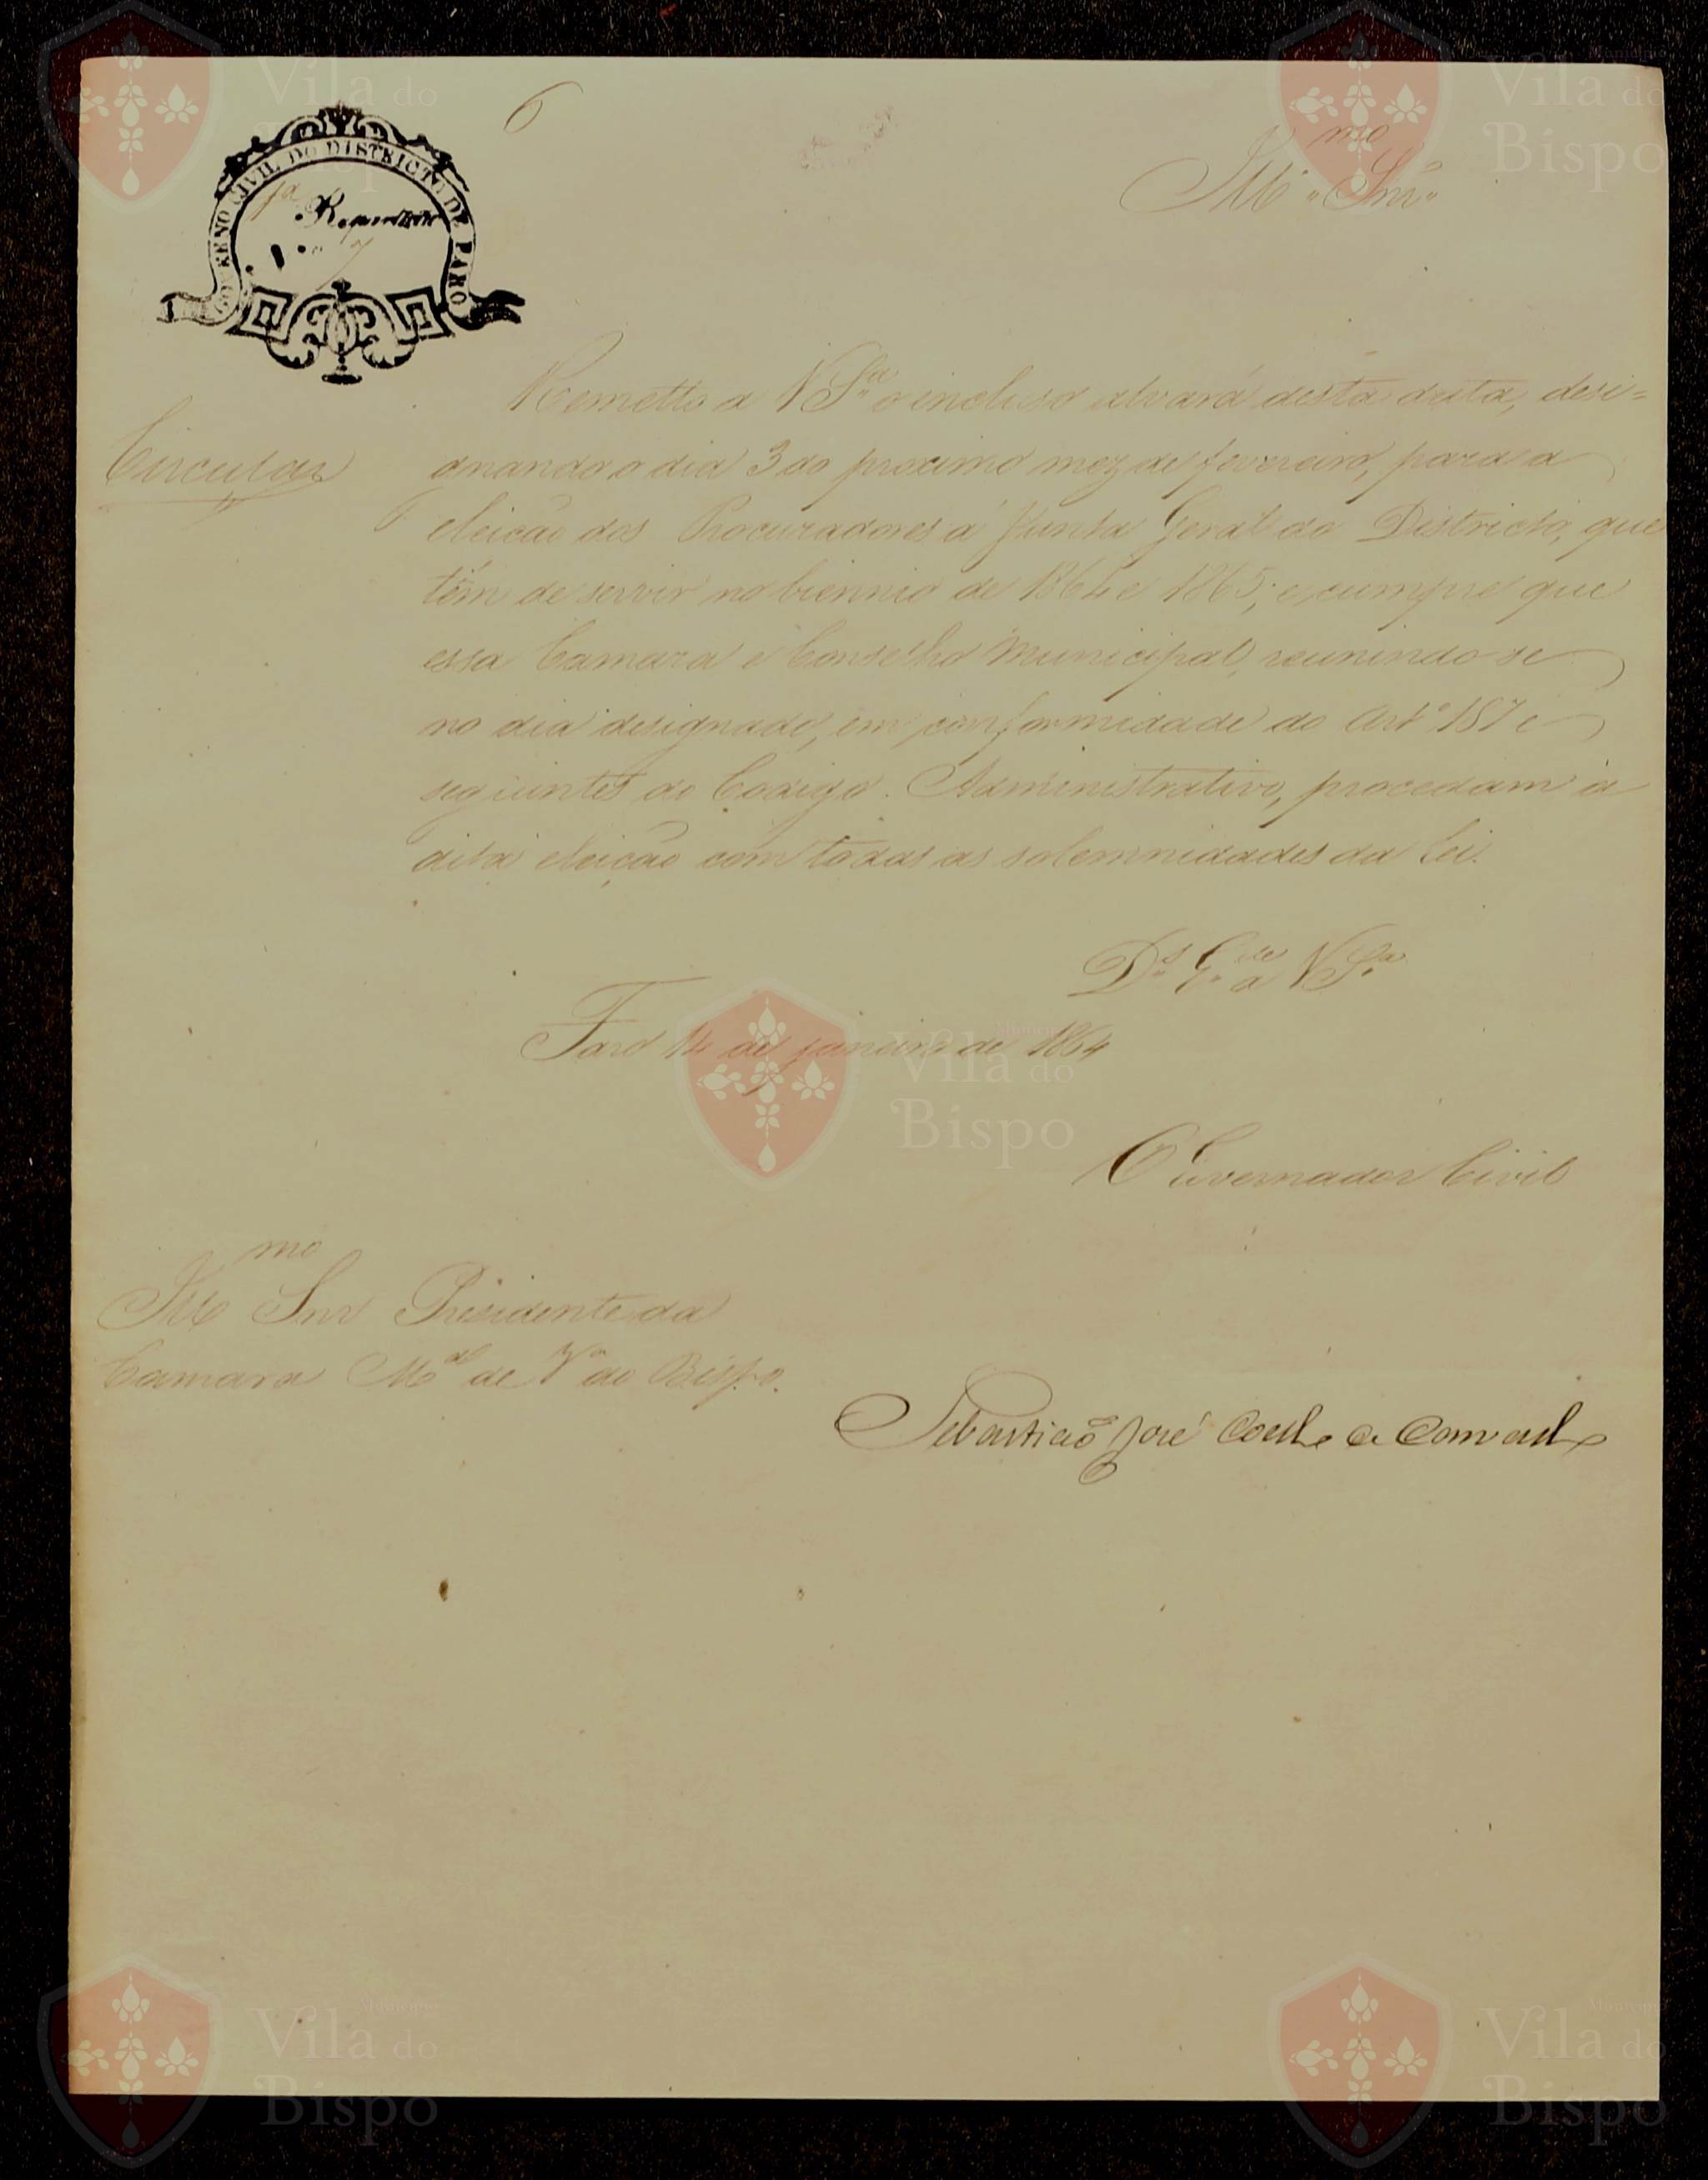 6
GOVERNO CIVIL DO DISTRICTO DE FARO
1ª Repartição
N.º 7
Ill.mo Snr.
Circular
Remetto a V S.ª o incluso alvará desta data, desi=
gnando o dia 3 do proximo mez de fevereiro, para a
eleição dos Procuradores á Junta Geral do Districto, que
têm de servir no biennio de 1864 e 1865; e cumpre que
essa Camara e Conselho Municipal, reunindo-se
no dia designado, em conformidade do Artº 187 e
seguintes do Codigo Administrativo, procedam á
dita eleição com todas as solemnidades da lei.
D.s G.de a V S.ª
Faro 14 de janeiro de 1864
O Governador Civil
Ill.mo Snr Presidente da
Camara M.al de Vª do Bispo.
Sebastião José Coelho de Carvalho
Município
Vila do
Bispo